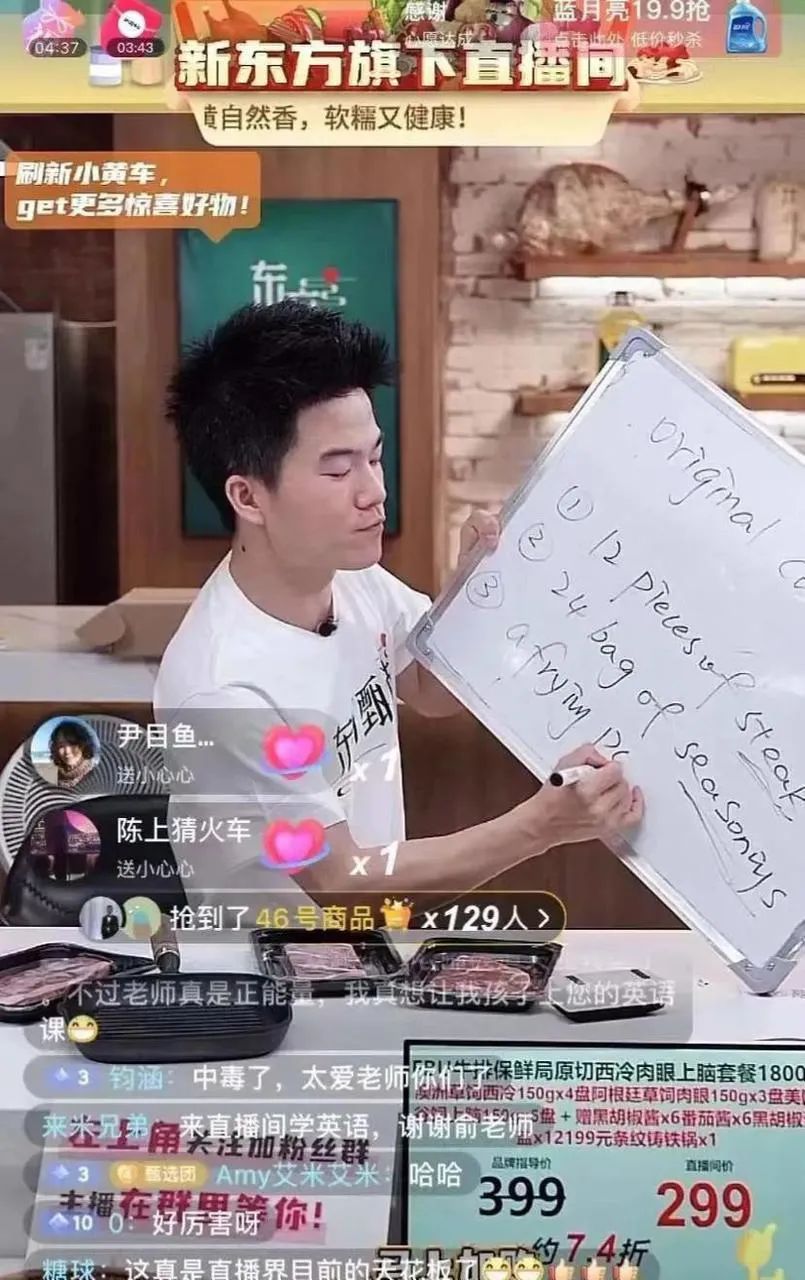 04:37
03:43
感谢
心愿达成
蓝月亮19.9抢
点击此处 低价秒杀
新东方旗下直播间
黄自然香，软糯又健康！
刷新小黄车，
get更多惊喜好物！
original
① 12 pieces of steak
② 24 bag of seasonings
③ a frying
尹目鱼...
送小心心
x 1
陈上猜火车
送小心心
x 1
抢到了46号商品 x129人 >
。不过老师真是正能量，我真想让我孩子上您的英语
课😁
3 钧涵：中毒了，太爱老师你们了
来米兄弟：来直播间学英语，谢谢俞老师
左上角关注加粉丝群
3 甄选团 Amy艾米艾米：哈哈
主播在群里等你!
10 0：好厉害呀
糖球：这真是直播界目前的天花板了😁😁👍🏻👍🏻👍🏻
牛排保鲜局原切西冷肉眼上脑套餐1800
澳洲草饲西冷150gx4盘阿根廷草饲肉眼150gx3盘美国
谷饲上脑150gx5盘 + 赠黑胡椒酱x6番茄酱x6黑胡椒
盐x12199元条纹铸铁锅x1
品牌指导价
399
直播间价
299
约7.4折